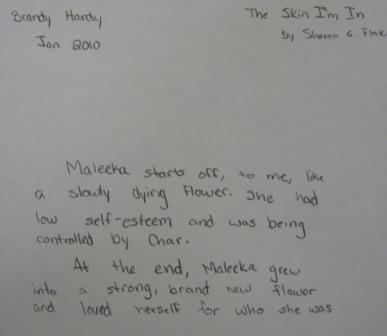 Brandy Hardy
The Skin I'm In
Jan 2010
By Sharon G. Flake
Maleeka starts off, to me, like
a slowly dying flower. She had
low self-esteem and was being
controlled by Char.
At the end, Maleeka grew
into a strong, brand new flower
and loved herself for who she was